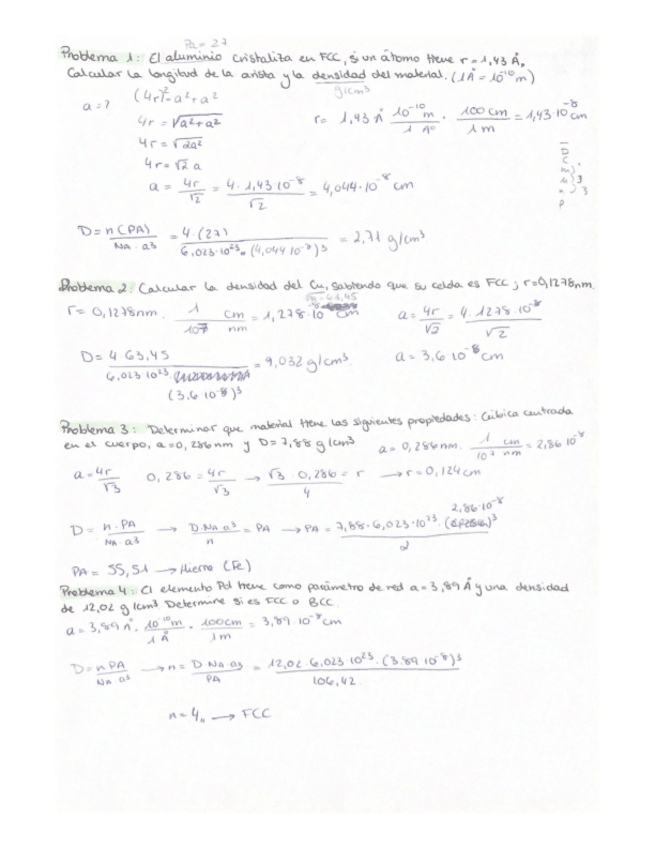 Pa = 27
Problema 1: El aluminio cristaliza en FCC, si un átomo tiene r = 1,43 Å.
Calcular la longitud de la arista y la densidad del material. (1 Å = 10^-10 m)
g/cm³
a = ? (4r)² = a² + a²
4r = √a² + a²
4r = √2a²
4r = √2 a
a = 4r/√2 = 4 · 1,43·10^-8/√2 = 4,044·10^-8 cm
r = 1,43 Å · 10^-10 m/1 Å · 100 cm/1 m = 1,43·10^-8 cm
D = n(PA)/NA · a³ = 4 · (27)/6,023·10²³ · (4,044·10^-8)³ = 2,71 g/cm³
Problema 2: Calcular la densidad del Cu, sabiendo que su celda es FCC; r = 0,1278 nm.
r = 0,1278 nm · 1/10^7 cm/nm = 1,278·10^-8 cm a = 4r/√2 = 4 · 1278·10^-8/√2
D = 4 · 63,45/6,023·10²³ · (3,6·10^-8)³ = 9,032 g/cm³ a = 3,6·10^-8 cm
Problema 3: Determinar que material tiene las siguientes propiedades: Cúbica centrada
en el cuerpo, a = 0,286 nm y D = 7,88 g/cm³ a = 0,286 nm · 1/10^7 cm/nm = 2,86·10^-8
a = 4r/√3 0,286 = 4r/√3 → √3 · 0,286/4 = r → r = 0,124 cm
D = n · PA/NA · a³ → D · NA · a³/n = PA → PA = 7,88 · 6,023·10²³ · (2,86·10^-8)³/2
PA = 55,51 → Hierro (Fe)
Problema 4: El elemento Pd tiene como parámetro de red a = 3,89 Å y una densidad
de 12,02 g/cm³ Determine si es FCC o BCC.
a = 3,89 Å · 10^-10 m/1 Å · 100 cm/1 m = 3,89·10^-8 cm
D = n PA/NA · a³ → n = D · NA · a³/PA = 12,02 · 6,023·10²³ · (3,89·10^-8)³/106,42
n = 4,, → FCC